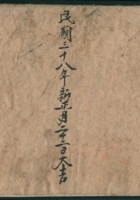 民國三十八年新正月二十三日大吉